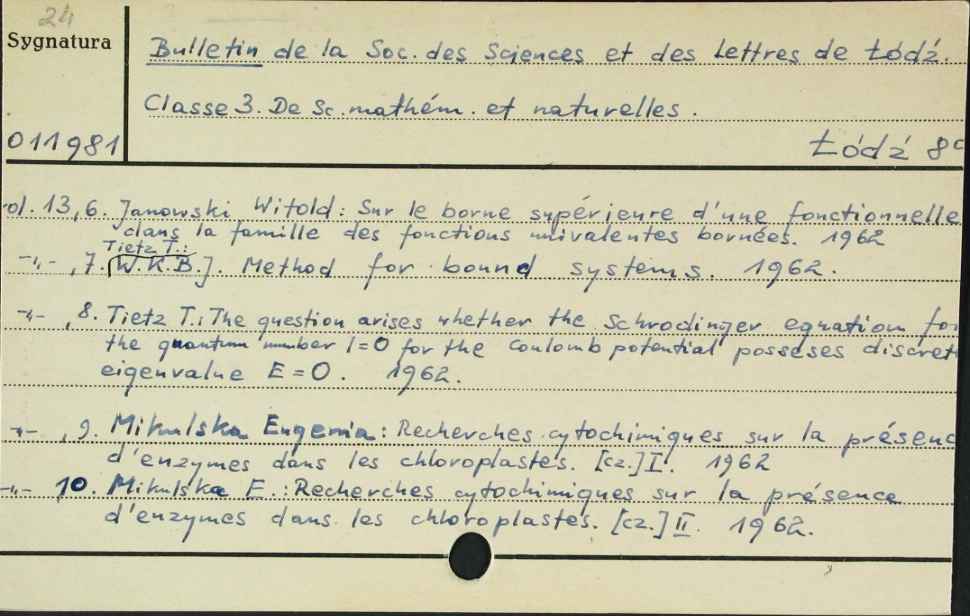 24
Sygnatura
Bulletin de la Soc. des Sciences et des Lettres de Łódź.
Classe 3. De Sc. mathém. et naturelles.
011981
Łódź 8°
ol. 13, 6. Janowski Witold: Sur le borne supérieure d'une fonctionnelle
dans la famille des fonctions univalentes bornées. 1962
Tietz T.:
-"- , 7. [W.K.B.]. Method for bound systems. 1962.
-"- , 8. Tietz T.: The question arises whether the Schrodinger equation for
the quantum number l=0 for the coulomb potential posseses discret
eigenvalue E = 0. 1962.
-"- , 9. Mikulska Eugenia: Recherches cytochimiques sur la présenc
d'enzymes dans les chloroplastes. [cz.] I. 1962
-"- 10. Mikulska E.: Recherches cytochimiques sur la présence
d'enzymes dans les chloroplastes. [cz.] II. 1962.